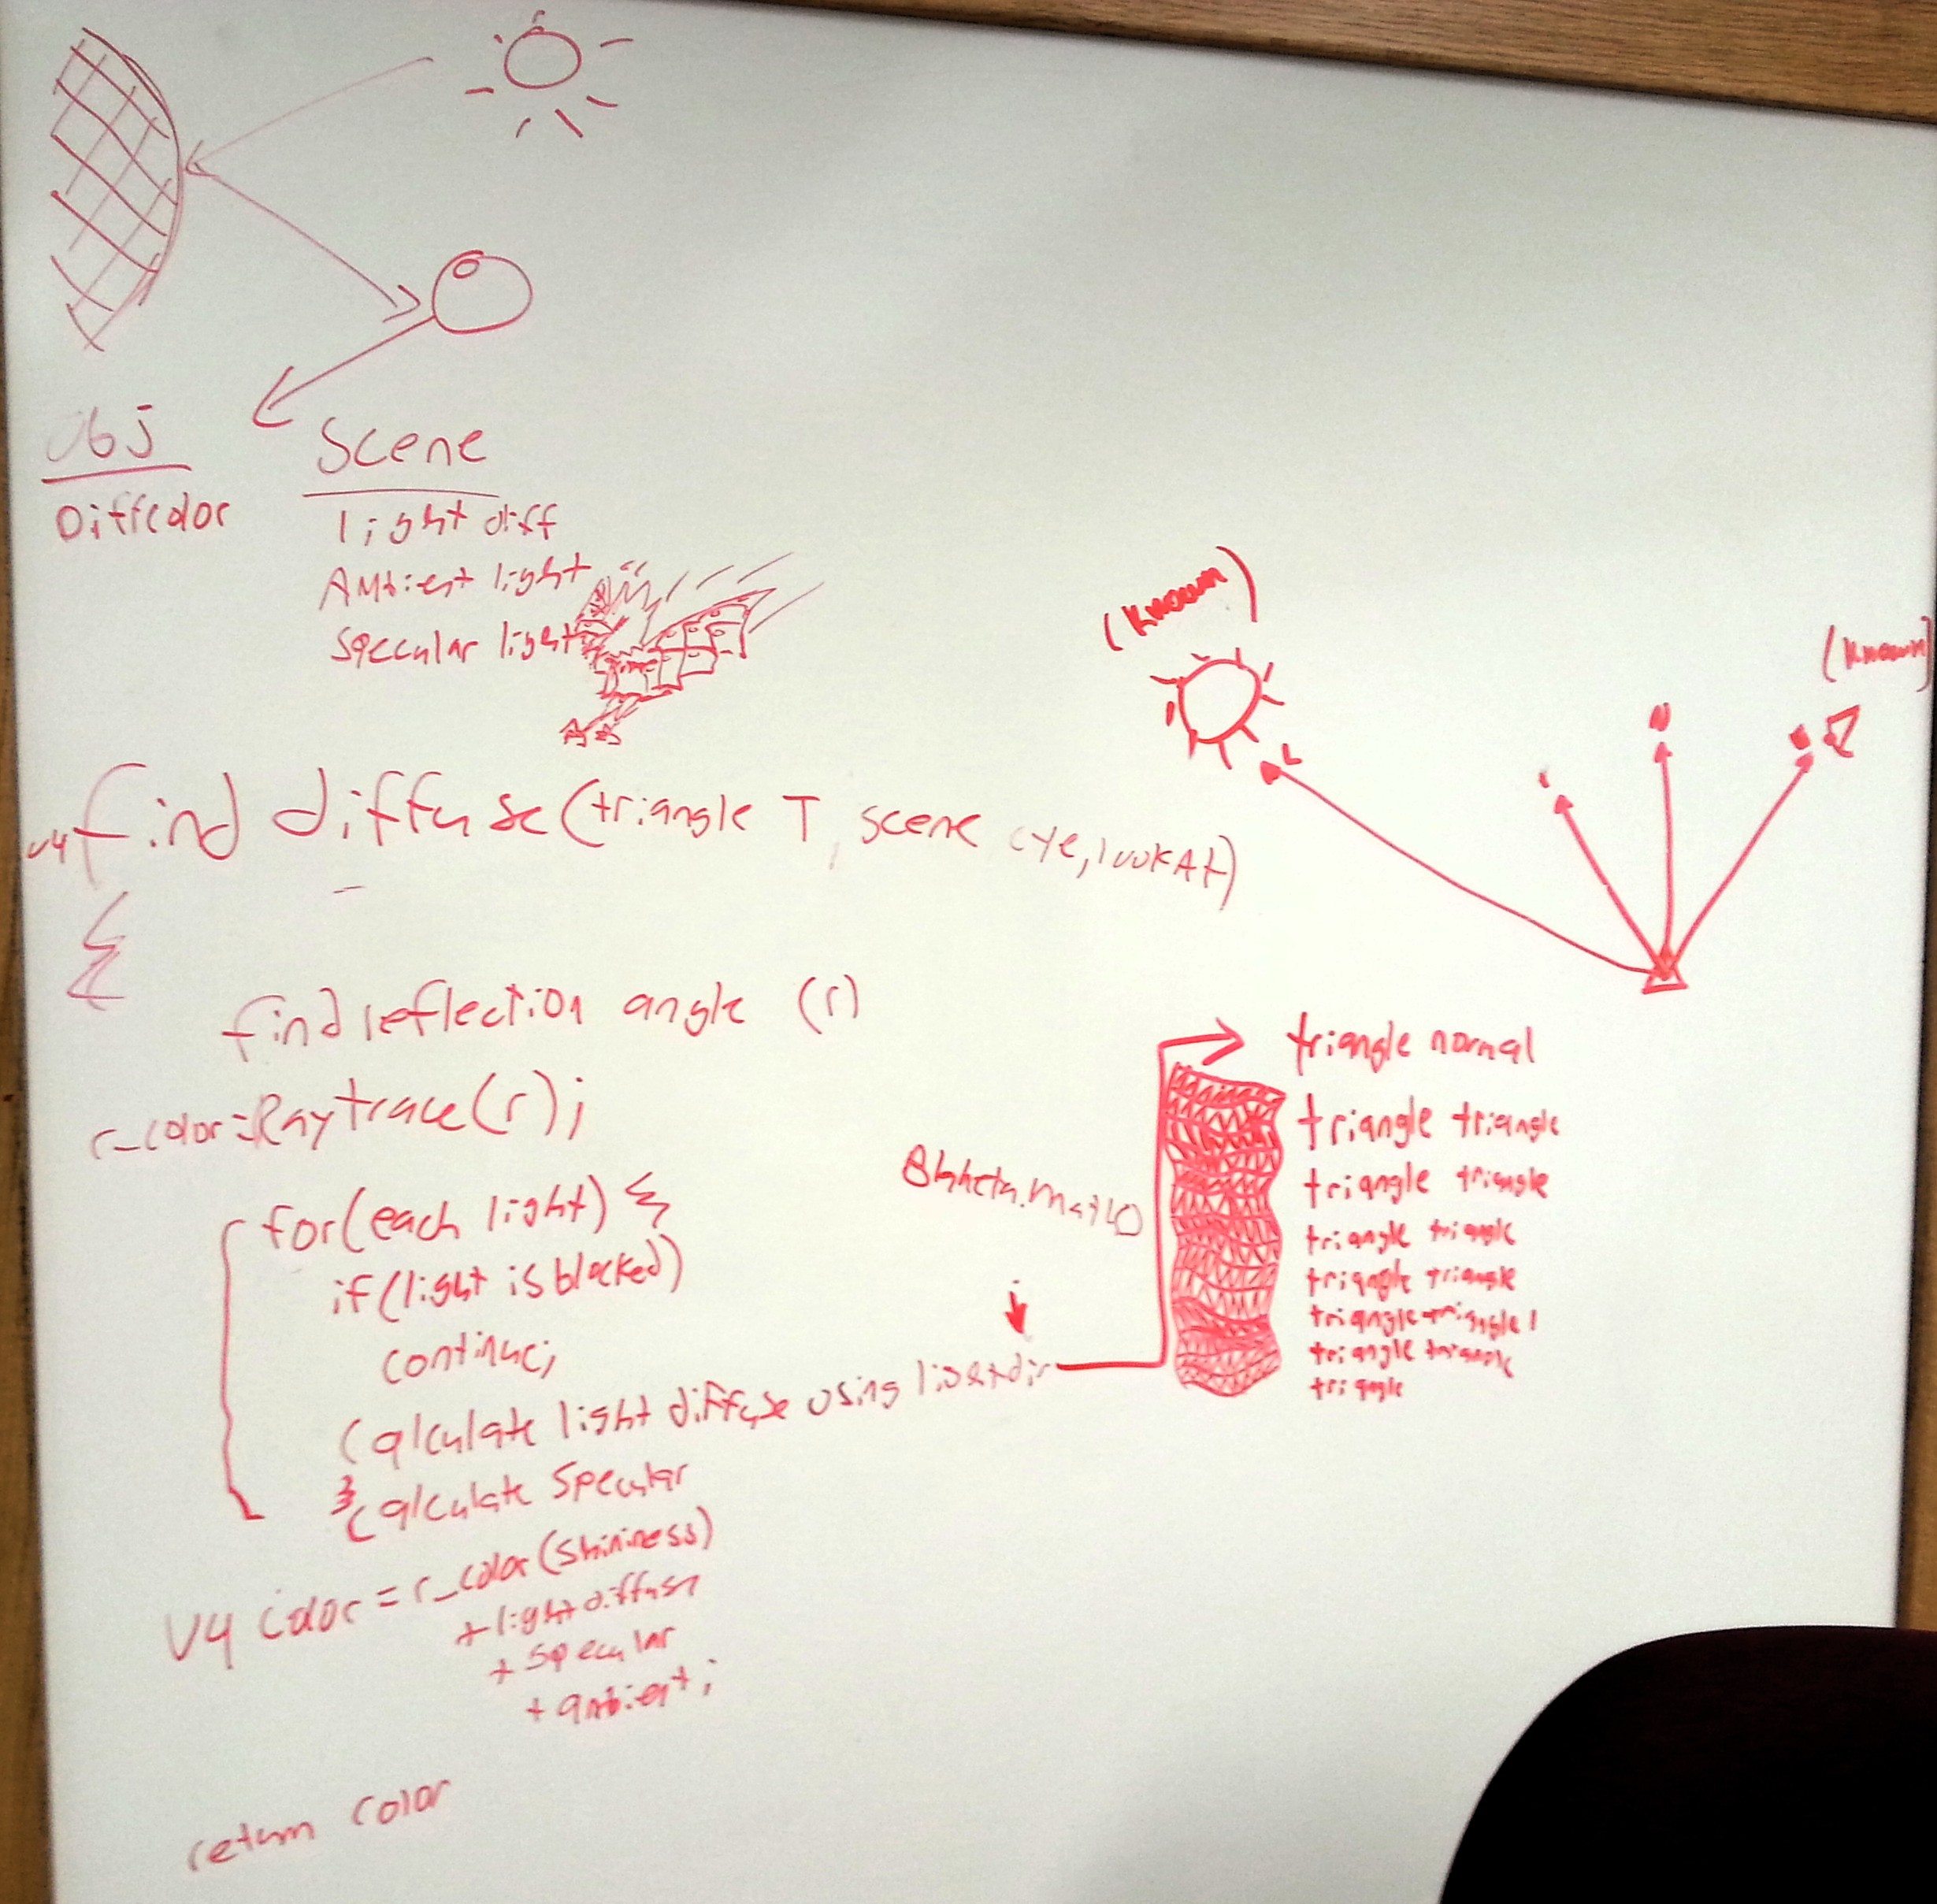 Obj
Diffcolor
Scene
light diff
Ambient light
Specular light
v4 find diffuse(triangle T, scene eye, lookAt)
{
find reflection angle (r)
r_color=Raytrace(r);
for(each light) {
if(light is blocked)
continue;
Calculate light diffuse using lightdir
}
Calculate Specular
V4 color = r_color(shininess)
+ light diffuse
+ Specular
+ ambient;
return color
(known)
L
(known)
N
triangle normal
triangle triangle
triangle triangle
triangle triangle
triangle triangle
triangle triangle!
triangle triangle
triangle